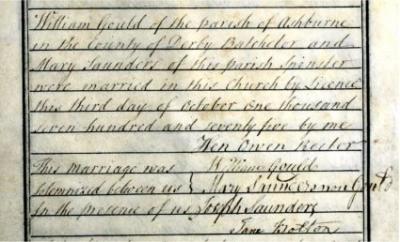 William Gould of the parish of Ashburne
in the County of Derby Batchelor and
Mary Saunders of this parish Spinster
were married in this Church by Licence
this third day of October One thousand
seven hundred and seventy five by me
Hen Owen Rector
This marriage was William Gould
solemnized between us Mary now Gould
In the presence of us Joseph Saunders
Jane Botton